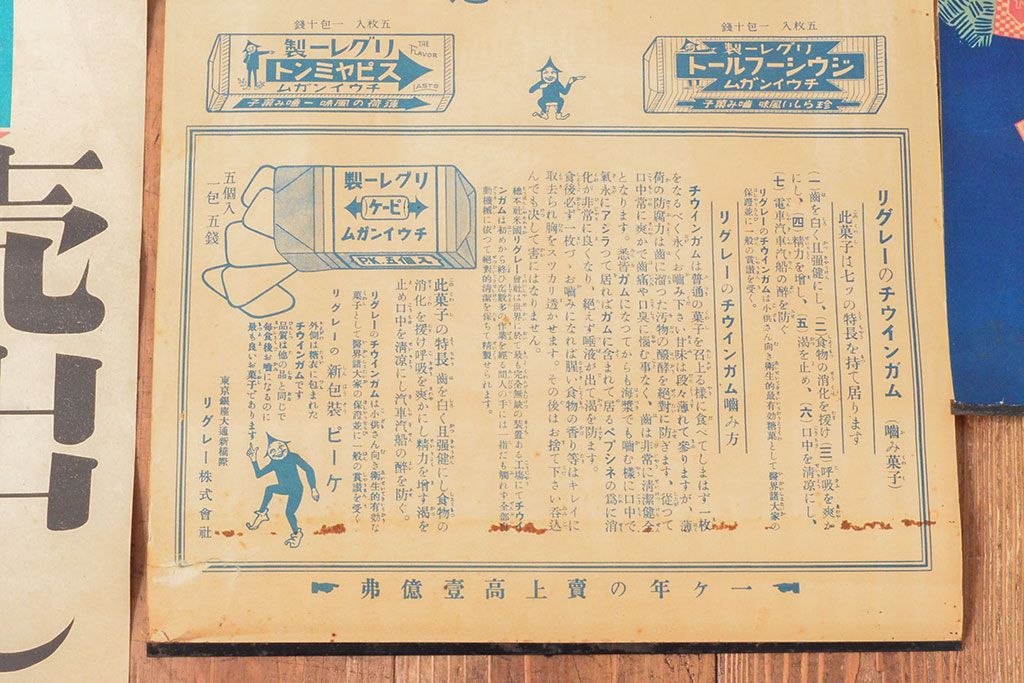 五枚入 一包十錢
リグレー製
THE FLAVOR
スピヤミント
チウインガム
LASTS
薄荷の風味ー噛み菓子
五枚入 一包十錢
リグレー製
ジウシーフルート
チウインガム
珍らしい風味 噛み菓子
リグレーのチウインガム (噛み菓子)
此菓子は七ッの特長を持て居ります
(一)齒を白く且强健にし、(二)食物の消化を援け(三)呼吸を爽か
にし、(四)精力を增し、(五)渴を止め、(六)口中を淸凉にし、
(七)電車汽車汽船の醉を防ぐ
リグレーのチウインガムは小供さん向き衞生的最有効糖菓として醫界諸大家の
保證並に一般の賞讃を受く。
リグレーのチウインガム噛み方
チウインガムは普通の菓子を召上る樣に食べてしまはず一枚
をなるべく永くお噛み下さい甘味は段々薄れて參りますが、薄
荷の防腐力は齒に溜つた汚物の醱酵を絕對に防ぎます、從つて
口中常に爽かで齒痛や口臭に惱む事なく、齒は非常に淸潔健全
となります。悉皆ガムになつてからも海䑓でも噛む樣に口中で
氣永にアシラつて居ればガムに含まれて居るペプシネの爲に消
化が非常に良くなり、絕えず唾液が出て渴を防ぎます。
食後必ず一枚づゝお噛みになれば腥い食物の香り等はキレイに
取去られ胸をスツカリ透かせます。その後はお捨て下さい呑込
んでも決して害にはなりません。
總本社米國リグレー會社は世界に於て最も完全無缺の裝置ある工場にてチウイ
ンガムは初めから終ひ迄數多の作業を經る間人の手には一指だも觸れず全部自
動機械に依つて絕對的淸潔を保ちて精製せられます。
リグレー製
ピーケー
チウインガム
PK.五個入
五個入
一包 五錢
此菓子の特長 齒を白く且强健にし食物の
消化を援け呼吸を爽かにし精力を增す渴を
止め口中を淸凉にし汽車汽船の醉を防ぐ。
リグレーのチウインガムは小供さん向き衞生的有効な
糖菓として醫界諸大家の保證並に一般の賞讃を受く
リグレーの新包裝 ピーケー
外側は糖衣に包まれた
チウインガムです
品質は他の品と同じで
每食後お噛になるのに
最も良いお菓子であります
東京銀座大通新橋際
リグレー株式會社
一ヶ年の賣上高壹億弗